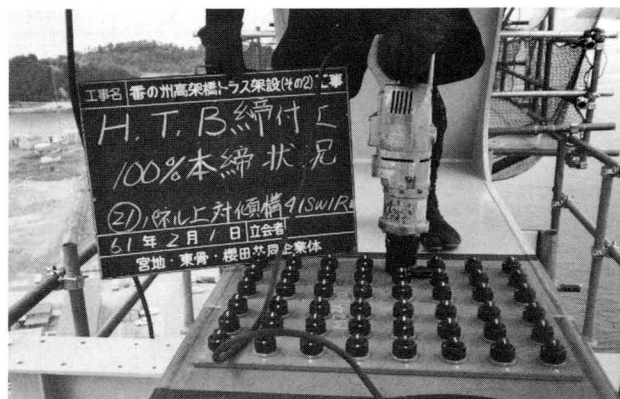 工事名 番の州高架橋トラス架設(その2)工事
H.T.B締付工
100%本締状況
㉑パネル上対傾構41SW1R
61年2月1日 立会者
宮地・東骨・櫻田共同企業体